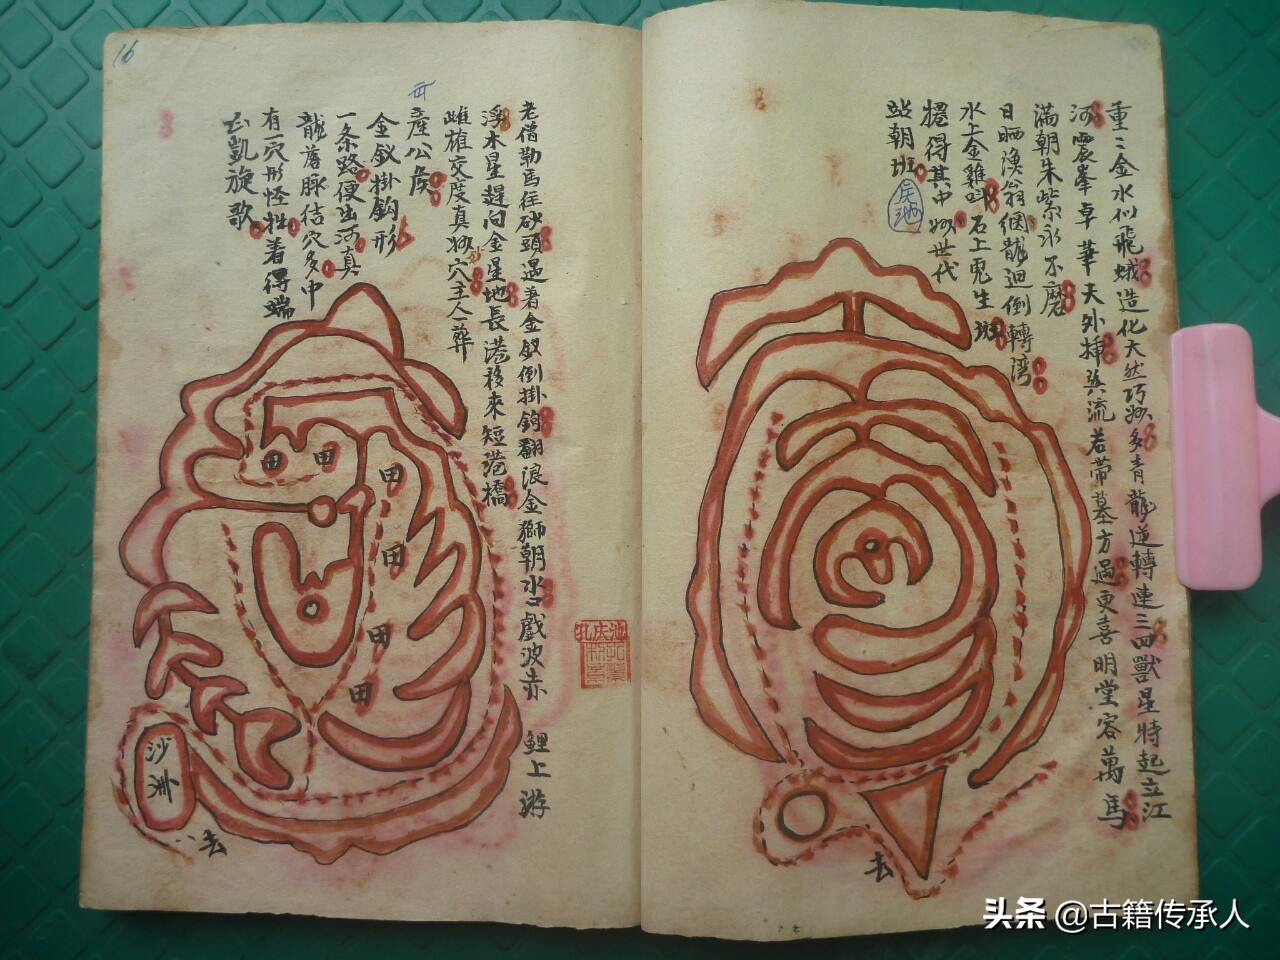 重重金水似飛蛾造化天然巧妙多青龍逆轉連三四獸星特起立江
河震峯卓華天外揷㳄流若帶墓方過更喜明堂容萬馬
滿朝朱紫永不磨
日晒漁翁個龍迴倒轉湾
水上金雞叫石上鬼生班
穩得其中妙世代
站朝班
去
老僧勒馬往砂頭過著金釵倒掛鈎翻浪金獅朝水口戲波赤鯉上游
浮木星趕向金星地長港移來短港橋
雌雄交度真妙穴主人葬
產公侯
金釵掛鈎形
一条路便出河真
龍落脉结穴多中
有一穴形怪牲著得端
去凱旋歌
田
田
田
田
田
田
沙洲
去
16
头条 @古籍传承人